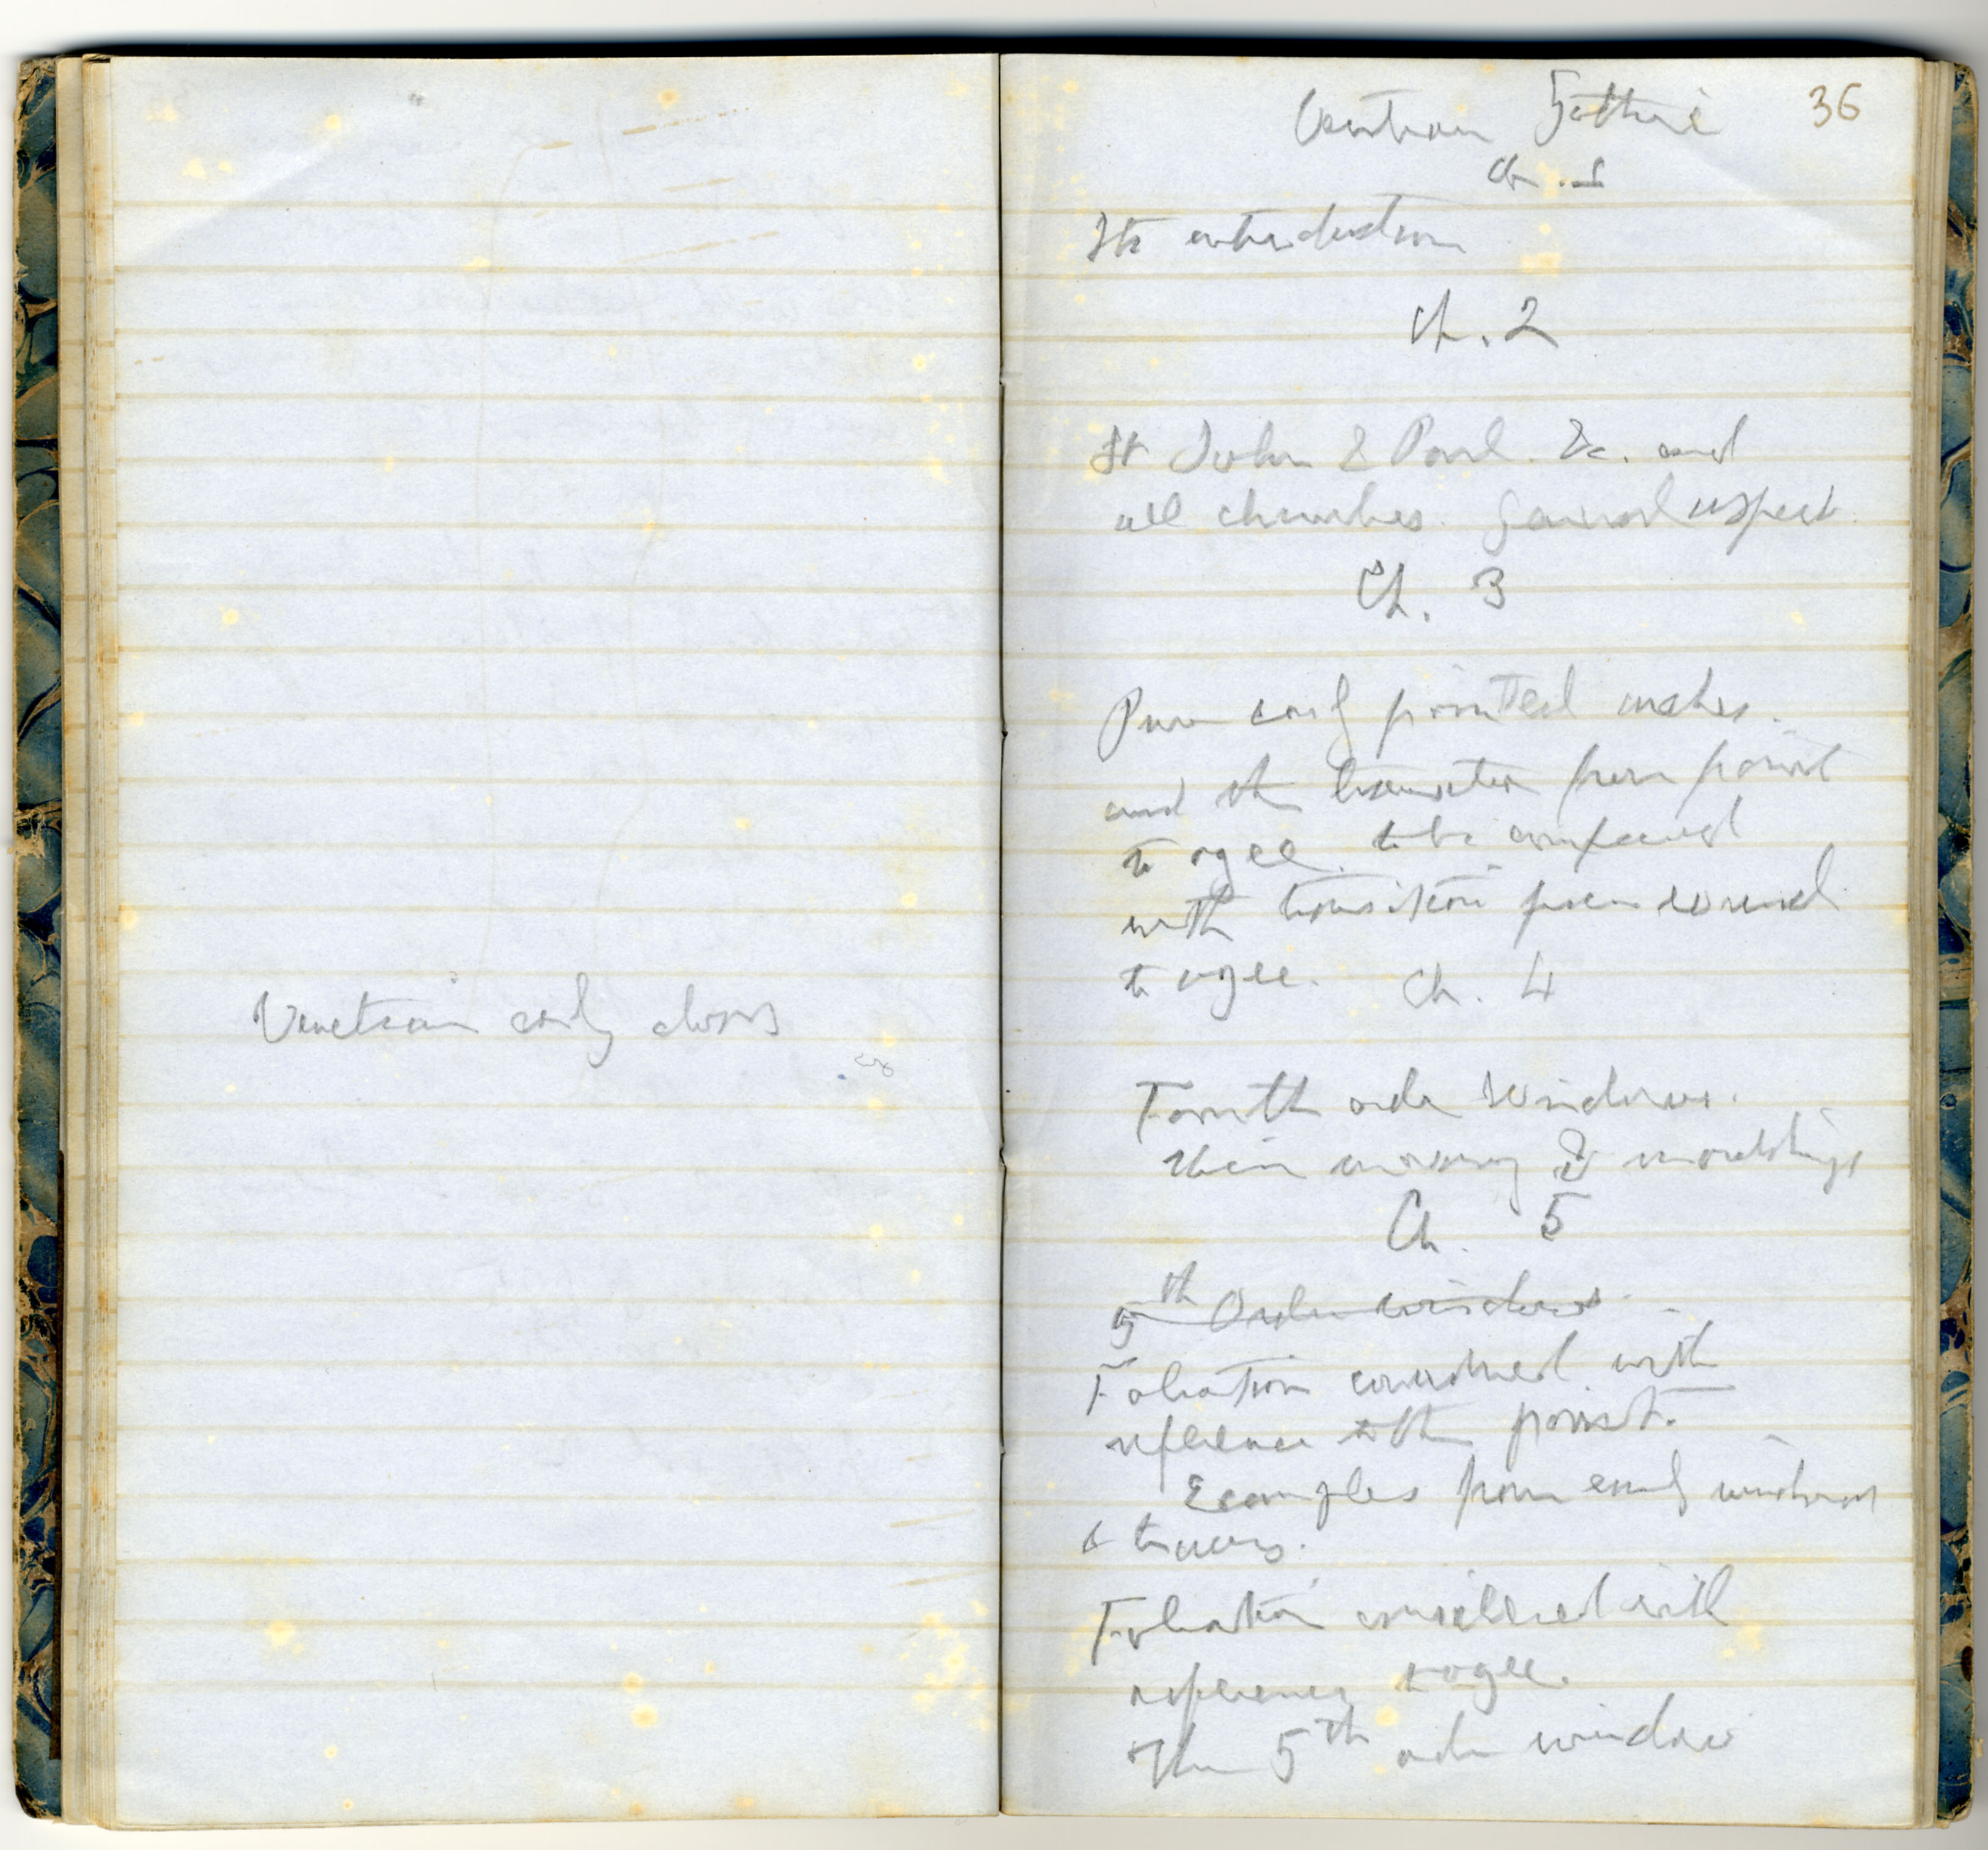 Venetian early doors
36
Venetian Gothic
Ch. 1
Its introduction
Ch. 2
St John & Paul. &c. and
all churches. General aspect.
Ch. 3
Pure early pointed arches.
and the transition from point
to ogee. to be compared
with transition from round
to ogee. Ch. 4
Fourth order Windows.
their masonry & mouldings
Ch. 5
5th Order windows.
Foliation considered with
reference to the point.
Examples from early windows
& tracery.
Foliation considered with
reference to ogee.
Then 5th order window